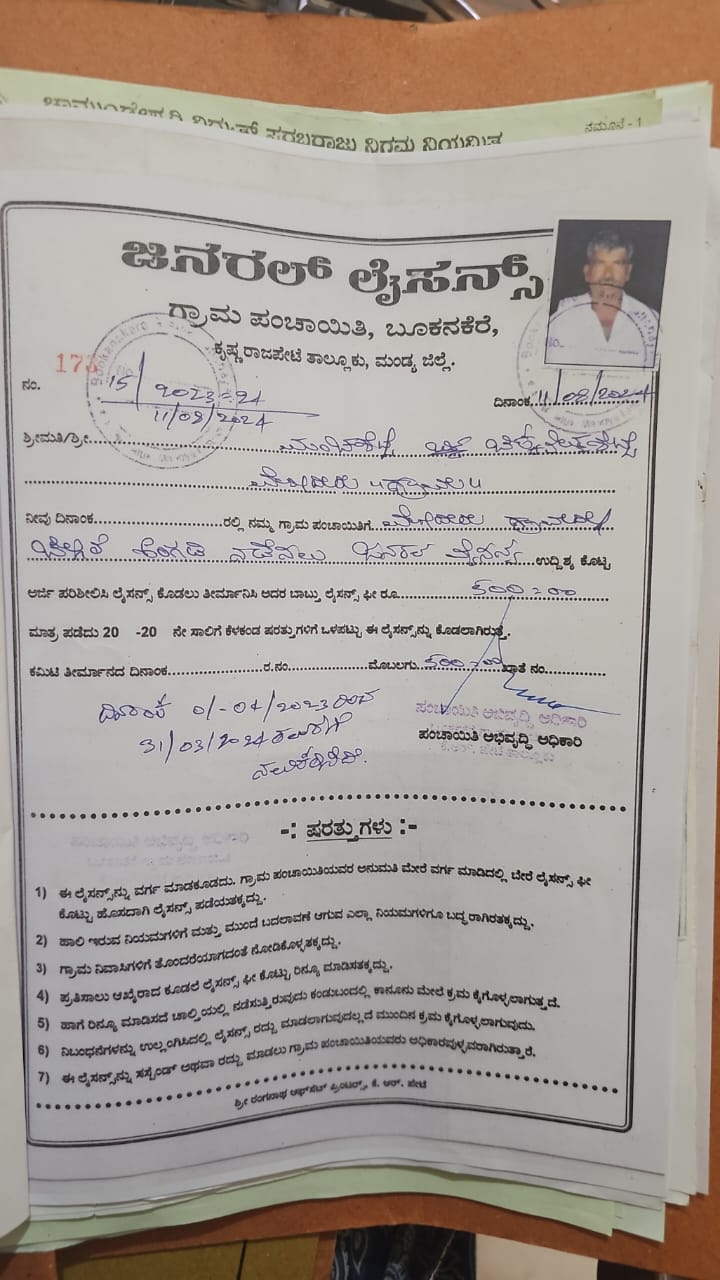 ಚಾಮುಂಡೇಶ್ವರಿ ವಿದ್ಯುತ್ ಸರಬರಾಜು ನಿಗಮ ನಿಯಮಿತ
ನಮೂನೆ - 1
ಜನರಲ್ ಲೈಸನ್ಸ್
ಗ್ರಾಮ ಪಂಚಾಯಿತಿ, ಬೂಕನಕೆರೆ,
ಕೃಷ್ಣರಾಜಪೇಟೆ ತಾಲ್ಲೂಕು, ಮಂಡ್ಯ ಜಿಲ್ಲೆ.
173
ನಂ. 15/2023-24
11/09/2024
ದಿನಾಂಕ
ಶ್ರೀಮತಿ/ಶ್ರೀ
ನೀವು ದಿನಾಂಕ ರಲ್ಲಿ ನಮ್ಮ ಗ್ರಾಮ ಪಂಚಾಯಿತಿಗೆ
ಅಂಗಡಿ ನಡೆಸಲು ಜನರಲ್ ಲೈಸನ್ಸ್ ಉದ್ದಿಶ್ಯ ಕೊಟ್ಟ
ಅರ್ಜಿ ಪರಿಶೀಲಿಸಿ ಲೈಸನ್ಸ್ ಕೊಡಲು ತೀರ್ಮಾನಿಸಿ ಅದರ ಬಾಬ್ತು ಲೈಸನ್ಸ್ ಫೀ ರೂ 500=00
ಮಾತ್ರ ಪಡೆದು 20 -20 ನೇ ಸಾಲಿಗೆ ಕೆಳಕಂಡ ಷರತ್ತುಗಳಿಗೆ ಒಳಪಟ್ಟು ಈ ಲೈಸನ್ಸ್‌ನ್ನು ಕೊಡಲಾಗಿರುತ್ತೆ.
ಕಮಿಟಿ ತೀರ್ಮಾನದ ದಿನಾಂಕ ರ.ನಂ. ಮೊಬಲಗು 500=00 ಖಾತೆ ನಂ.
ದಿನಾಂಕ 01-04/2023 ರಿಂದ
31/03/2024
ಪಂಚಾಯಿತಿ ಅಭಿವೃದ್ಧಿ ಅಧಿಕಾರಿ
ಪಂಚಾಯಿತಿ ಅಭಿವೃದ್ಧಿ ಅಧಿಕಾರಿ
ಕೆ.ಆರ್. ಪೇಟೆ ತಾಲ್ಲೂಕು
-: ಷರತ್ತುಗಳು :-
1) ಈ ಲೈಸನ್ಸ್‌ನ್ನು ವರ್ಗ ಮಾಡಕೂಡದು. ಗ್ರಾಮ ಪಂಚಾಯಿತಿಯವರ ಅನುಮತಿ ಮೇರೆ ವರ್ಗ ಮಾಡಿದಲ್ಲಿ ಬೇರೆ ಲೈಸನ್ಸ್ ಫೀ
ಕೊಟ್ಟು ಹೊಸದಾಗಿ ಲೈಸನ್ಸ್ ಪಡೆಯತಕ್ಕದ್ದು.
2) ಹಾಲಿ ಇರುವ ನಿಯಮಗಳಿಗೆ ಮತ್ತು ಮುಂದೆ ಬದಲಾವಣೆ ಆಗುವ ಎಲ್ಲಾ ನಿಯಮಗಳಿಗೂ ಬದ್ಧರಾಗಿರತಕ್ಕದ್ದು.
3) ಗ್ರಾಮ ನಿವಾಸಿಗಳಿಗೆ ತೊಂದರೆಯಾಗದಂತೆ ನೋಡಿಕೊಳ್ಳತಕ್ಕದ್ದು.
4) ಪ್ರತಿಸಾಲು ಆಖೈರಾದ ಕೂಡಲೆ ಲೈಸನ್ಸ್ ಫೀ ಕೊಟ್ಟು ರಿನ್ಯೂ ಮಾಡಿಸತಕ್ಕದ್ದು.
5) ಹಾಗೆ ರಿನ್ಯೂ ಮಾಡಿಸದೆ ಚಾಲ್ತಿಯಲ್ಲಿ ನಡೆಸುತ್ತಿರುವುದು ಕಂಡುಬಂದಲ್ಲಿ ಕಾನೂನು ಮೇಲೆ ಕ್ರಮ ಕೈಗೊಳ್ಳಲಾಗುತ್ತದೆ.
6) ನಿಬಂಧನೆಗಳನ್ನು ಉಲ್ಲಂಗಿಸಿದಲ್ಲಿ ಲೈಸನ್ಸ್ ರದ್ದು ಮಾಡಲಾಗುವುದಲ್ಲದೆ ಮುಂದಿನ ಕ್ರಮ ಕೈಗೊಳ್ಳಲಾಗುವುದು.
7) ಈ ಲೈಸನ್ಸ್‌ನ್ನು ಸಸ್ಪೆಂಡ್ ಅಥವಾ ರದ್ದು ಮಾಡಲು ಗ್ರಾಮ ಪಂಚಾಯಿತಿಯವರು ಅಧಿಕಾರವುಳ್ಳವರಾಗಿರುತ್ತಾರೆ.
ಶ್ರೀ ರಂಗನಾಥ ಆಫ್‌ಸೆಟ್ ಪ್ರಿಂಟರ್ಸ್, ಕೆ. ಆರ್. ಪೇಟೆ